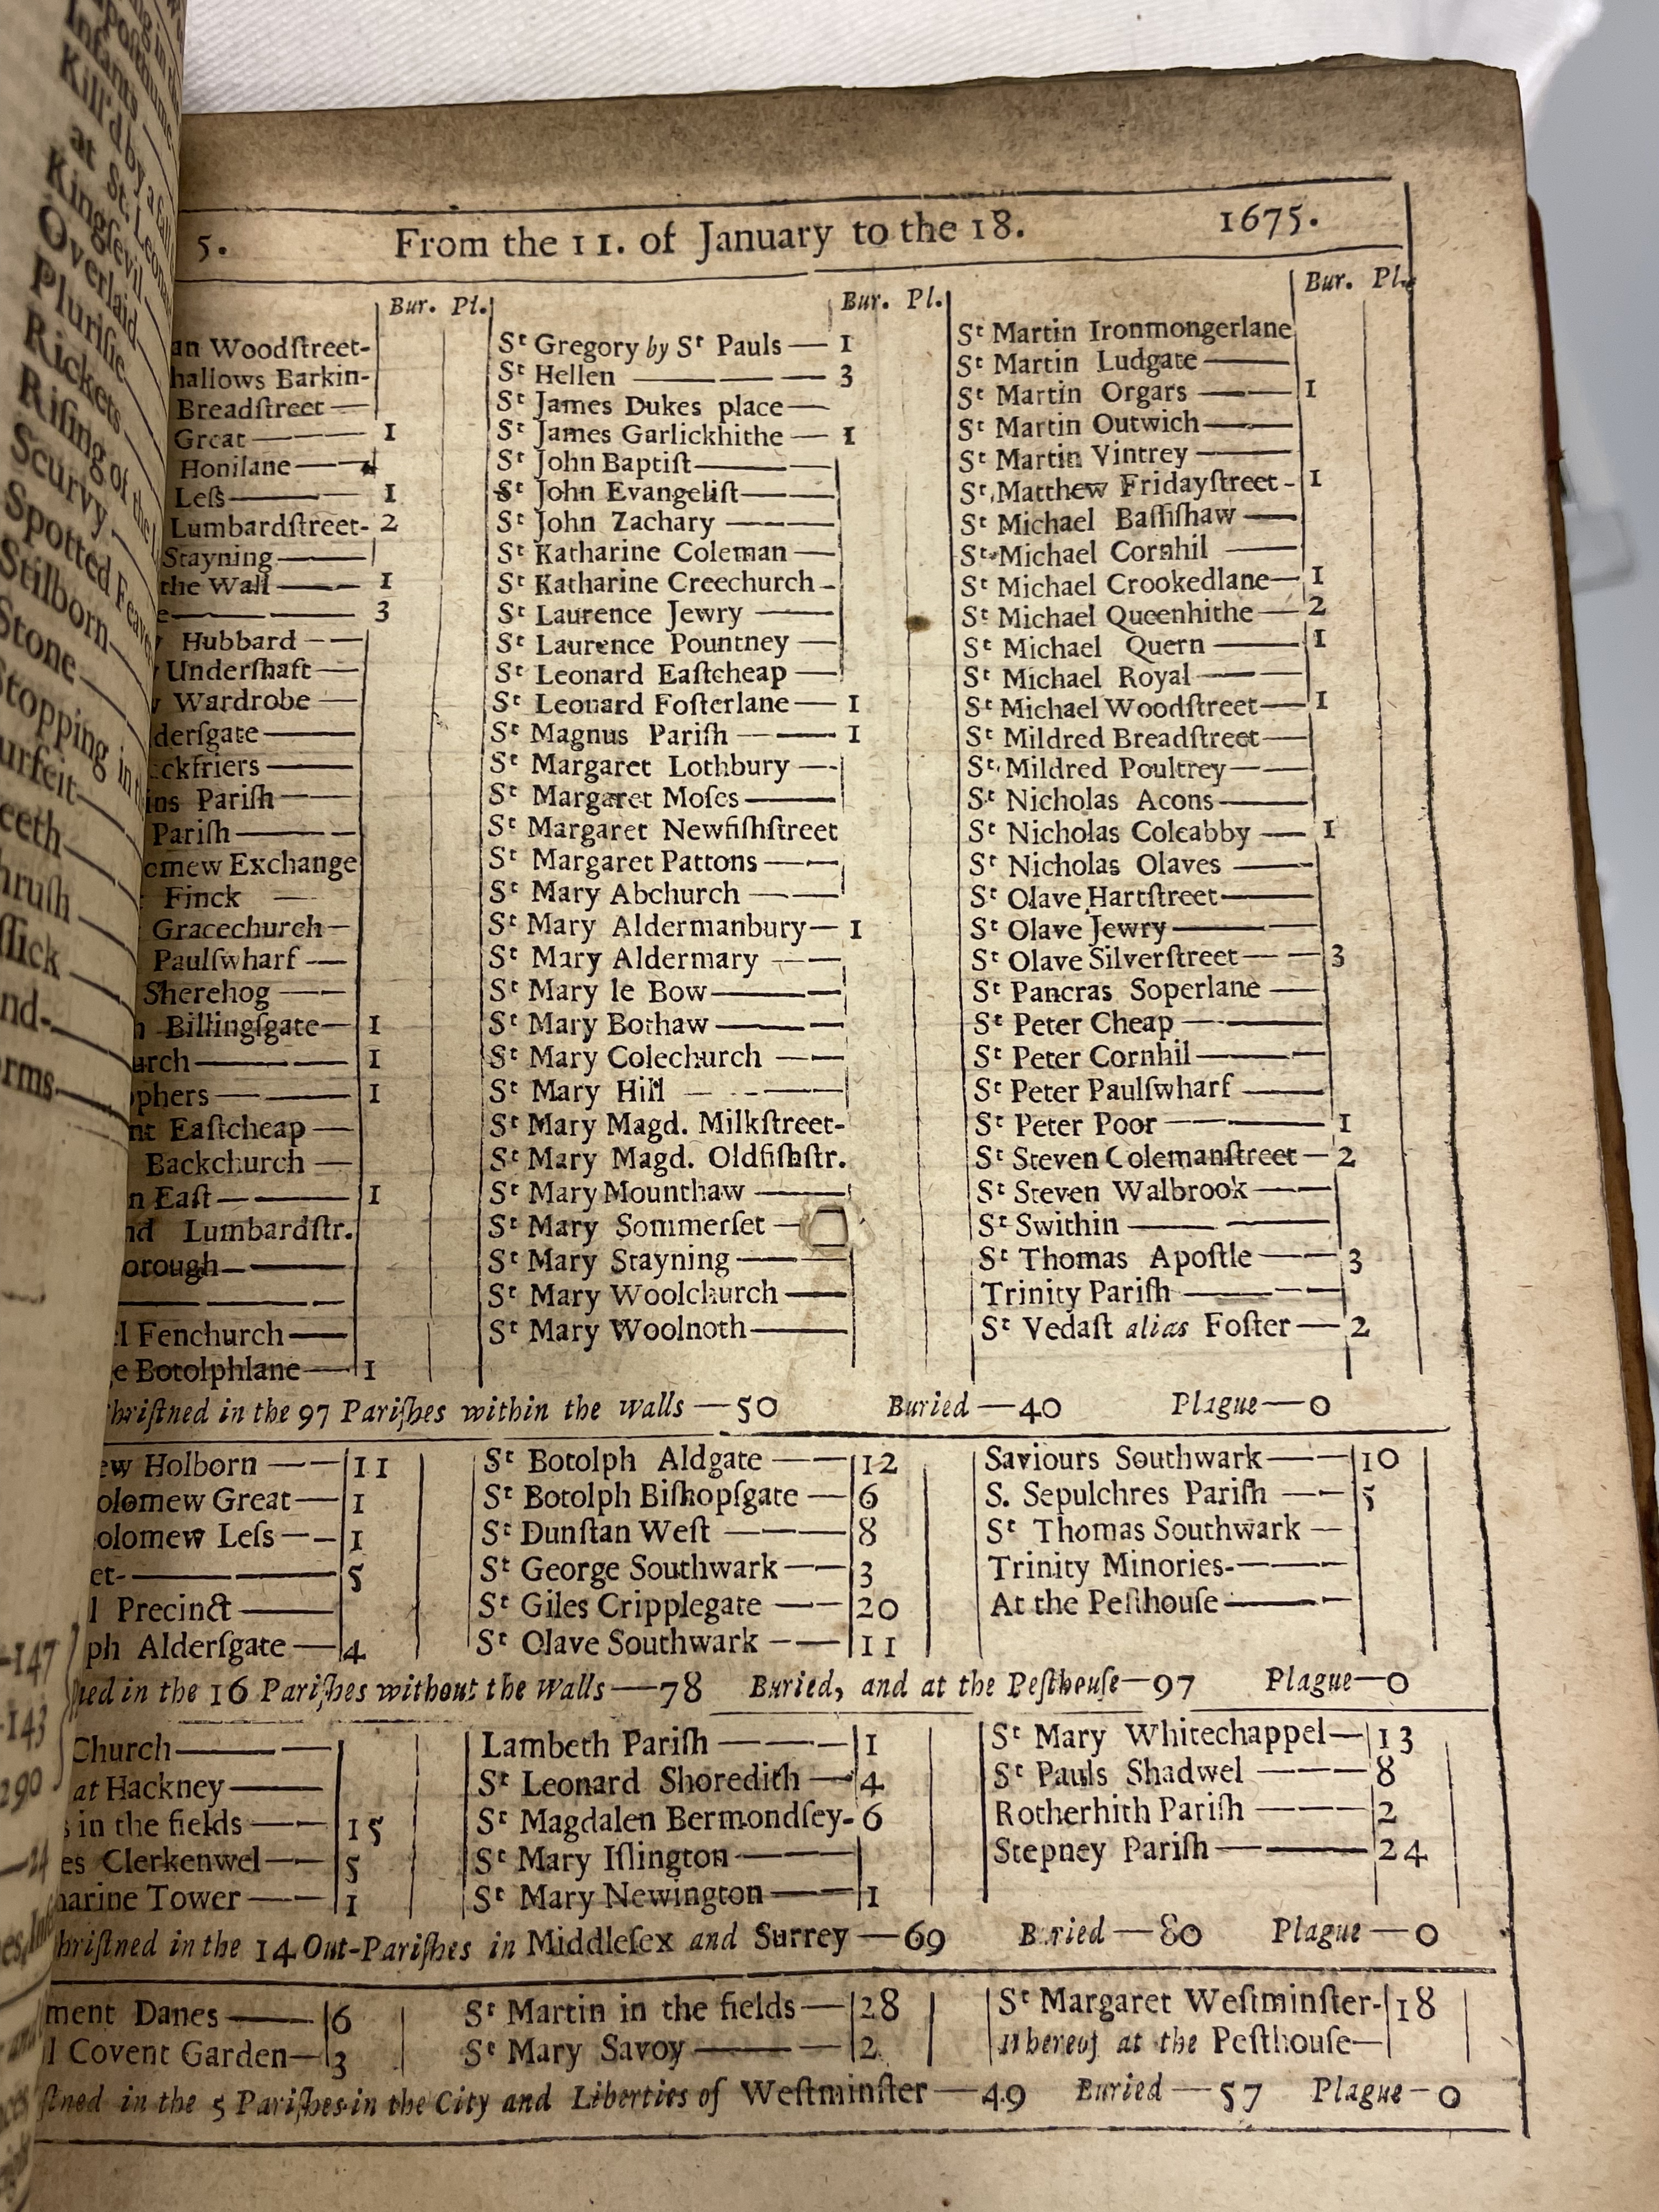 5. From the 11. of January to the 18. 1675.
Bur. Pl.
an Woodſtreet-
hallows Barkin-
Breadſtreet —
Great — 1
Honilane —
Leſs — 1
Lumbardſtreet- 2
Stayning —
the Wall — 1
e — 3
Hubbard —
Underſhaft —
Wardrobe —
derſgate —
ckfriers —
ins Pariſh —
Pariſh —
omew Exchange
Finck —
Gracechurch —
Paulſwharf —
Sherehog —
Billingſgate — 1
urch — 1
ophers — 1
nt Eaſtcheap —
Backchurch —
n Eaſt — 1
nd Lumbardſtr.
orough —
l Fenchurch —
e Botolphlane — 1
Bur. Pl.
St Gregory by St Pauls — 1
St Hellen — 3
St James Dukes place —
St James Garlickhithe — 1
St John Baptiſt —
St John Evangeliſt —
St John Zachary —
St Katharine Coleman —
St Katharine Creechurch -
St Laurence Jewry —
St Laurence Pountney —
St Leonard Eaſtcheap —
St Leonard Foſterlane — 1
St Magnus Pariſh — 1
St Margaret Lothbury —
St Margaret Moſes —
St Margaret Newfiſhſtreet
St Margaret Pattons —
St Mary Abchurch —
St Mary Aldermanbury — 1
St Mary Aldermary —
St Mary le Bow —
St Mary Bothaw —
St Mary Colechurch —
St Mary Hill —
St Mary Magd. Milkſtreet-
St Mary Magd. Oldfiſhſtr.
St Mary Mounthaw —
St Mary Sommerſet —
St Mary Stayning —
St Mary Woolchurch —
St Mary Woolnoth —
Bur. Pl.
St Martin Ironmongerlane
St Martin Ludgate —
St Martin Orgars — 1
St Martin Outwich —
St Martin Vintrey —
St Matthew Fridayſtreet - 1
St Michael Baſſiſhaw —
St Michael Cornhil —
St Michael Crookedlane — 1
St Michael Queenhithe — 2
St Michael Quern — 1
St Michael Royal —
St Michael Woodſtreet — 1
St Mildred Breadſtreet —
St Mildred Poultrey —
St Nicholas Acons —
St Nicholas Coleabby — 1
St Nicholas Olaves —
St Olave Hartſtreet —
St Olave Jewry —
St Olave Silverſtreet — 3
St Pancras Soperlane —
St Peter Cheap —
St Peter Cornhil —
St Peter Paulſwharf —
St Peter Poor — 1
St Steven Colemanſtreet — 2
St Steven Walbrook —
St Swithin —
St Thomas Apoſtle — 3
Trinity Pariſh —
St Vedaſt alias Foſter — 2
hriſtned in the 97 Pariſhes within the walls — 50 Buried — 40 Plague — 0
ew Holborn — 11
olomew Great — 1
olomew Leſs — 1
et- — 5
l Precinct —
ph Alderſgate — 4
St Botolph Aldgate — 12
St Botolph Biſhopſgate — 6
St Dunſtan Weſt — 8
St George Southwark — 3
St Giles Cripplegate — 20
St Olave Southwark — 11
Saviours Southwark — 10
S. Sepulchres Pariſh — 5
St Thomas Southwark —
Trinity Minories- —
At the Peſthouſe —
ned in the 16 Pariſhes without the Walls — 78 Buried, and at the Peſthouſe — 97 Plague — 0
Church —
at Hackney —
s in the fields — 15
es Clerkenwel — 5
harine Tower — 1
Lambeth Pariſh — 1
St Leonard Shoredith — 4
St Magdalen Bermondſey- 6
St Mary Iſlington —
St Mary Newington — 1
St Mary Whitechappel — 13
St Pauls Shadwel — 8
Rotherhith Pariſh — 2
Stepney Pariſh — 24
hriſtned in the 14 Out-Pariſhes in Middleſex and Surrey — 69 Buried — 80 Plague — 0
ment Danes — 6
l Covent Garden — 3
St Martin in the fields — 28
St Mary Savoy — 2
St Margaret Weſtminſter- 18
Whereof at the Peſthouſe —
ſtned in the 5 Pariſhes in the City and Liberties of Weſtminſter — 49 Buried — 57 Plague — 0
Infants
Kill'd by a fall
at St. Leon
Kingſevil
Overlaid
Pluriſie
Rickets
Riſing of the
Scurvy
Spotted Feaver
Stilborn
Stone
Stopping in
urfeit
eeth
hruſh
ſſick
nd-
orms
147
143
290